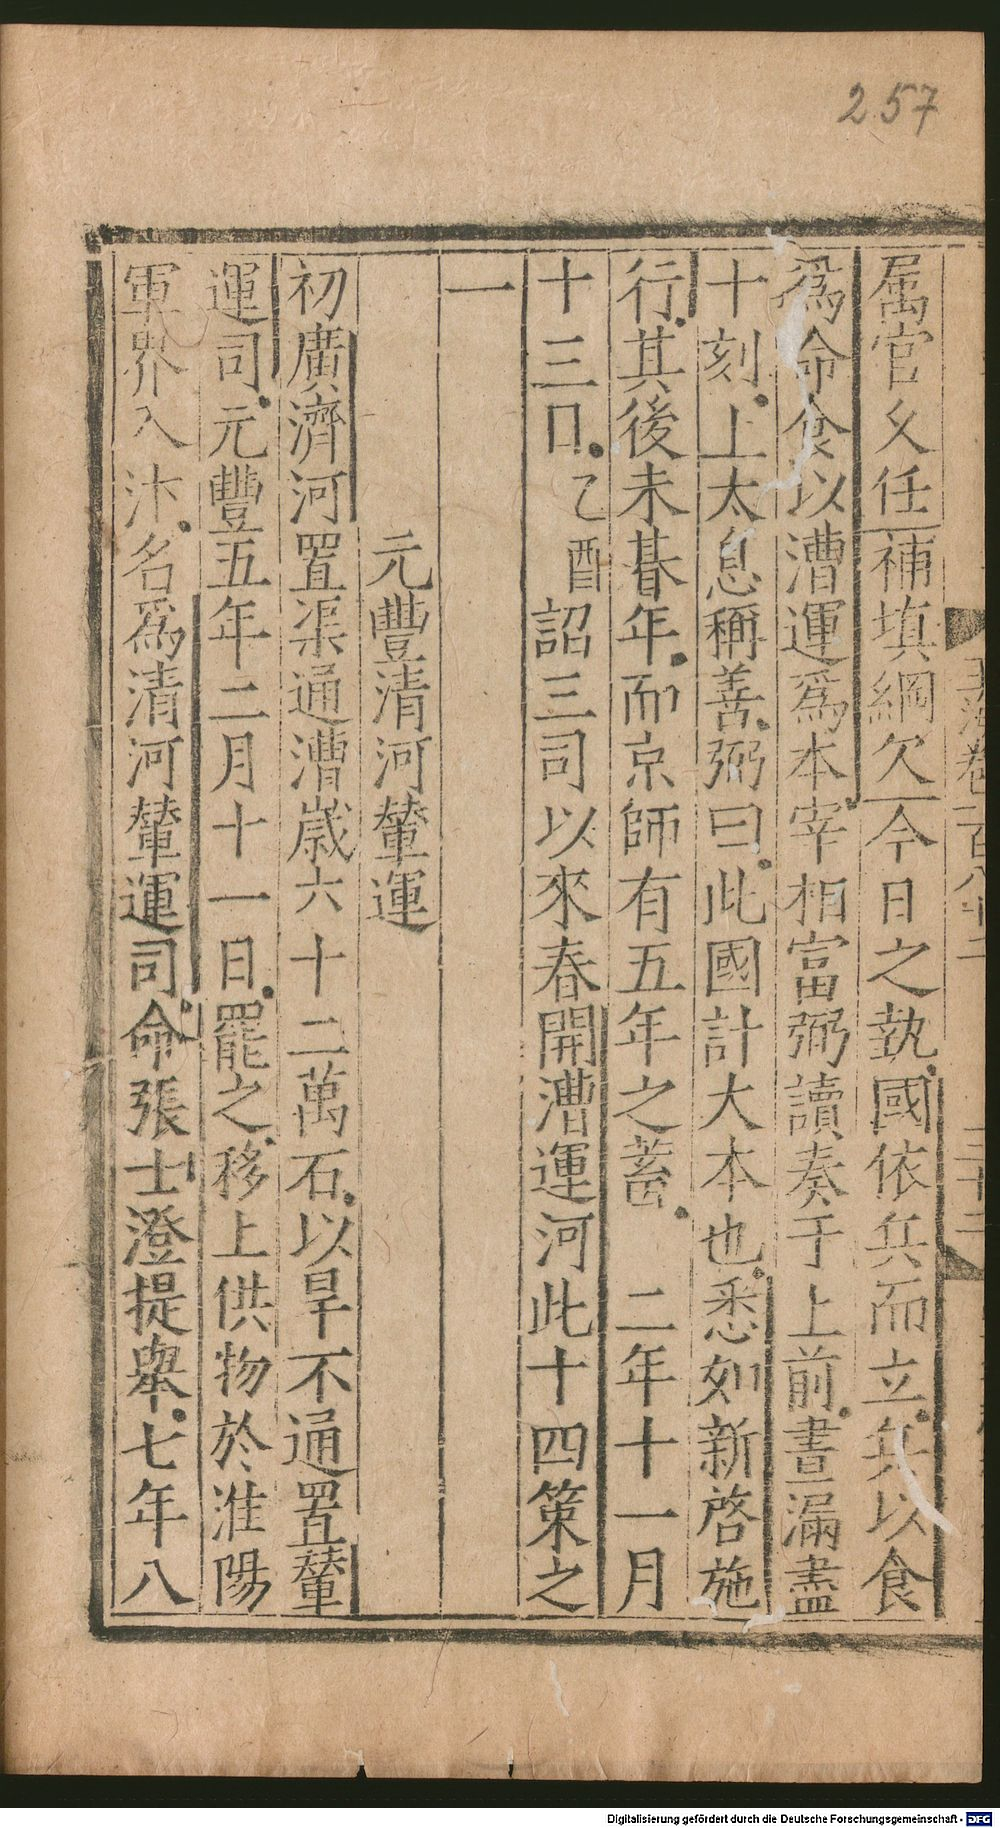 257
玉海卷一百八十二
三十二
属官久任補填綱欠今日之埶國依兵而立兵以食
為命食以漕運為本宰相富弼讀奏于上前晝漏盡
十刻上太息稱善弼曰此國計大本也悉如新啓施
行其後未朞年而京師有五年之蓄 二年十一月
十三日乙酉詔三司以來春開漕運河此十四策之
一
元豐清河輦運
初廣濟河置渠通漕歲六十二萬石以旱不通置輦
運司元豐五年二月十一日罷之移上供物於淮陽
軍界入汴名為清河輦運司命張士澄提舉七年八
Digitalisierung gefördert durch die Deutsche Forschungsgemeinschaft - DFG